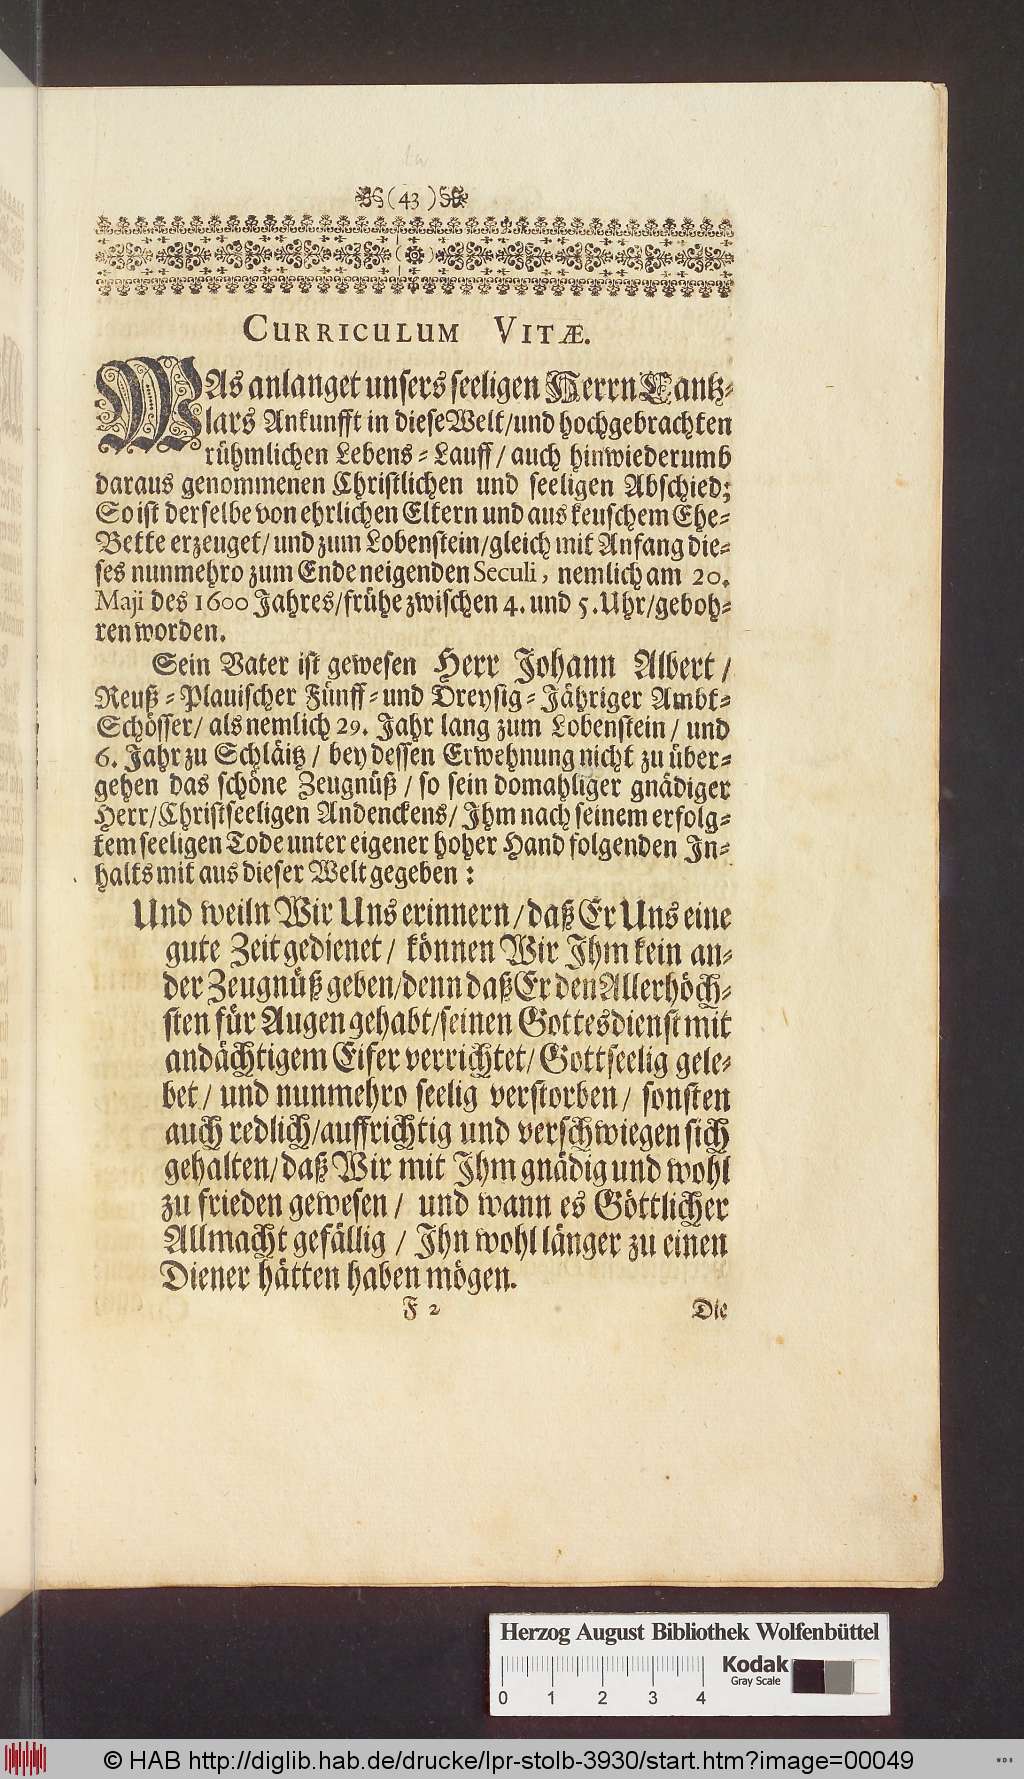 (43)
CURRICULUM VITÆ.
WAs anlanget unsers seeligen Herrn Cantz-
lars Ankunfft in diese Welt/und hochgebrachten
rühmlichen Lebens-Lauff/ auch hinwiederumb
daraus genommenen Christlichen und seeligen Abschied;
So ist derselbe von ehrlichen Eltern und aus keuschem Ehe-
Bette erzeuget/ und zum Lobenstein/gleich mit Anfang die-
ses nunmehro zum Ende neigenden Seculi, nemlich am 20.
Maji des 1600 Jahres/frühe zwischen 4. und 5. Uhr/geboh-
ren worden.
Sein Vater ist gewesen Herr Johann Albert/
Reuß-Plauischer Fünff-und Dreysig-Jähriger Ambt-
Schösser/ als nemlich 29. Jahr lang zum Lobenstein/ und
6. Jahr zu Schläitz/ bey dessen Erwehnung nicht zu über-
gehen das schöne Zeugnüß/ so sein domahliger gnädiger
Herr/Christseeligen Andenckens/ Ihm nach seinem erfolg-
tem seeligen Tode unter eigener hoher Hand folgenden In-
halts mit aus dieser Welt gegeben:
Und weiln Wir Uns erinnern/daß Er Uns eine
gute Zeit gedienet/ können Wir Ihm kein an-
der Zeugnüß geben/denn daß Er den Allerhöch-
sten für Augen gehabt/seinen Gottesdienst mit
andächtigem Eifer verrichtet/ Gottseelig gele-
bet/ und nunmehro seelig verstorben/ sonsten
auch redlich/auffrichtig und verschwiegen sich
gehalten/daß Wir mit Ihm gnädig und wohl
zu frieden gewesen/ und wann es Göttlicher
Allmacht gefällig/ Ihn wohl länger zu einen
Diener hätten haben mögen.
F 2 Die
Herzog August Bibliothek Wolfenbüttel
0 1 2 3 4
Kodak
Gray Scale
© HAB http://diglib.hab.de/drucke/lpr-stolb-3930/start.htm?image=00049